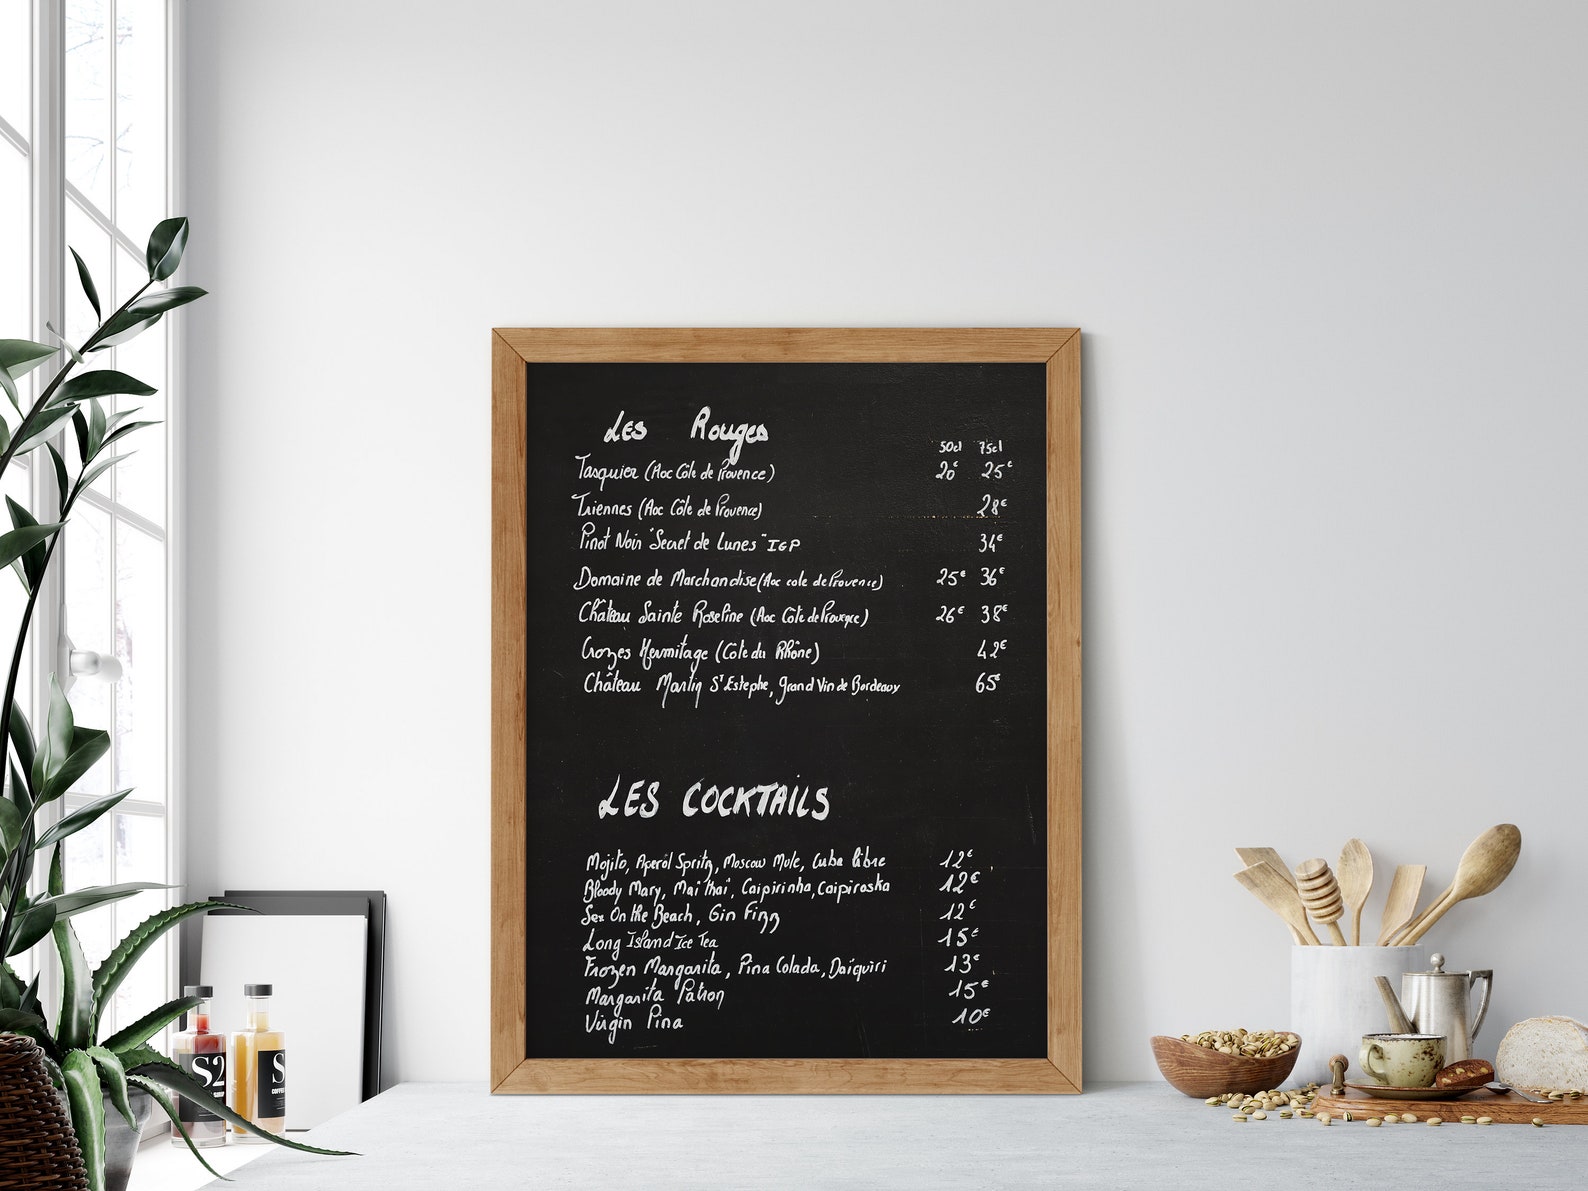 Les Rouges
50cl 75cl
Tasquier (Aoc Côte de Provence) 20€ 25€
Triennes (Aoc Côte de Provence) 28€
Pinot Noir "Secret de Lunes" IGP 34€
Domaine de Marchandise (Aoc cote de Provence) 25€ 36€
Château Sainte Roseline (Aoc Côte de Provence) 26€ 38€
Crozes Hermitage (Côte du Rhône) 42€
Château Martin St Estephe, Grand Vin de Bordeaux 65€
LES COCKTAILS
Mojito, Aperol Spritz, Moscow Mule, Cuba libre 12€
Bloody Mary, Maï thaï, Caipirinha, Caipiroska 12€
Sex On the Beach, Gin Fizz 12€
Long Island Ice Tea 15€
Frozen Margarita, Pina Colada, Daïquiri 13€
Margarita Patron 15€
Virgin Pina 10€
S2
S